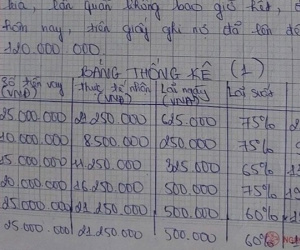 lần quán không bao giờ hết,
hôm nay, tiền giấy ghi nợ đã lên đế
120.000.000.
BẢNG THỐNG KÊ (1)
Số tiền vay (VNĐ) Thực tế nhận (VNĐ) Lãi ngày (VNĐ) Lãi suất
25.000.000 21 250.000 625.000 75%
10.000.000 8.500.000 250.000 75%
15.000.000 11 250.000 325.000 65%
20.000.000 16 250.000 500.000 75%
25.000.000 21.250.000 500.000 60%
25.000.000 21 250.000 500.000 60%